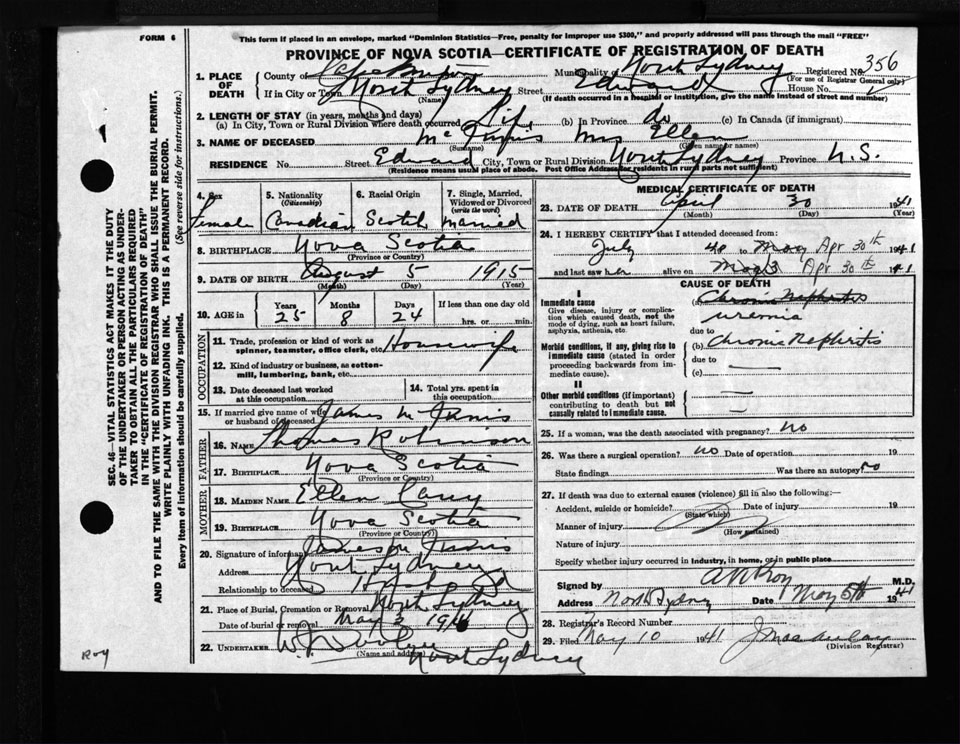 FORM 6
This form if placed in an envelope, marked "Dominion Statistics—Free, penalty for improper use $300," and properly addressed will pass through the mail "FREE"
PROVINCE OF NOVA SCOTIA—CERTIFICATE OF REGISTRATION OF DEATH
1. PLACE OF DEATH
County of Cape Breton Municipality of North Sydney Registered No. 356
(For use of Registrar General only)
If in City or Town North Sydney Street Edward House No.
(Name) (If death occurred in a hospital or institution, give the name instead of street and number)
2. LENGTH OF STAY (in years, months and days)
(a) In City, Town or Rural Division where death occurred Life (b) In Province do (c) In Canada (if immigrant)
3. NAME OF DECEASED Mc Innis Mrs Ellen
(Surname) (Given name or names)
RESIDENCE No. Street Edward City, Town or Rural Division North Sydney Province N.S.
(Residence means usual place of abode. Post Office Address for residents in rural parts not sufficient)
4. Sex
Female
5. Nationality
(Citizenship)
Canadian
6. Racial Origin
Scotch
7. Single, Married, Widowed or Divorced
(write the word)
Married
8. BIRTHPLACE Nova Scotia
(Province or Country)
9. DATE OF BIRTH August 5 1915
(Month) (Day) (Year)
10. AGE in
Years Months Days If less than one day old
25 8 24 hrs. or min.
OCCUPATION
11. Trade, profession or kind of work as spinner, teamster, office clerk, etc. Housewife
12. Kind of industry or business, as cotton-mill, lumbering, bank, etc.
13. Date deceased last worked at this occupation
14. Total yrs. spent in this occupation
15. If married give name of wife or husband of deceased James McInnis
FATHER
16. NAME Thomas Robinson
17. BIRTHPLACE Nova Scotia
(Province or Country)
MOTHER
18. MAIDEN NAME Ellen
19. BIRTHPLACE Nova Scotia
(Province or Country)
20. Signature of informant James McInnis
Address North Sydney
Relationship to deceased Husband
21. Place of Burial, Cremation or Removal North Sydney
Date of burial or removal May 3 1941
22. UNDERTAKER
(Name and address) North Sydney
MEDICAL CERTIFICATE OF DEATH
23. DATE OF DEATH April 30 1941
(Month) (Day) (Year)
24. I HEREBY CERTIFY that I attended deceased from
July 40 to May Apr 30th 1941
and last saw her alive on May 3 Apr 30th 1941
CAUSE OF DEATH
I
Immediate cause
Give disease, injury or complication which caused death, not the mode of dying, such as heart failure, asphyxia, asthenia, etc.
(a) Chronic Nephritis
uremia
due to
Morbid conditions, if any, giving rise to immediate cause (stated in order proceeding backwards from immediate cause).
(b) Chronic Nephritis
due to
(c)
II
Other morbid conditions (if important) contributing to death but NOT causally related to immediate cause.
25. If a woman, was the death associated with pregnancy? No
26. Was there a surgical operation? no Date of operation 19
State findings Was there an autopsy? no
27. If death was due to external causes (violence) fill in also the following:—
Accident, suicide or homicide? Date of injury 19
(State which)
Manner of injury
(How sustained)
Nature of injury
Specify whether injury occurred in industry, in home, or in public place
Signed by M.D.
Address North Sydney Date May 5th 1941
28. Registrar's Record Number
29. Filed May 10 1941
(Division Registrar)
SEC. 46—VITAL STATISTICS ACT MAKES IT THE DUTY
OF THE UNDERTAKER OR PERSON ACTING AS UNDER-
TAKER TO OBTAIN ALL THE PARTICULARS REQUIRED
IN THE "CERTIFICATE OF REGISTRATION OF DEATH"
AND TO FILE THE SAME WITH THE DIVISION REGISTRAR WHO SHALL ISSUE THE BURIAL PERMIT.
WRITE PLAINLY WITH UNFADING INK. THIS IS A PERMANENT RECORD.
Every item of information should be carefully supplied. (See reverse side for instructions.)
Roy